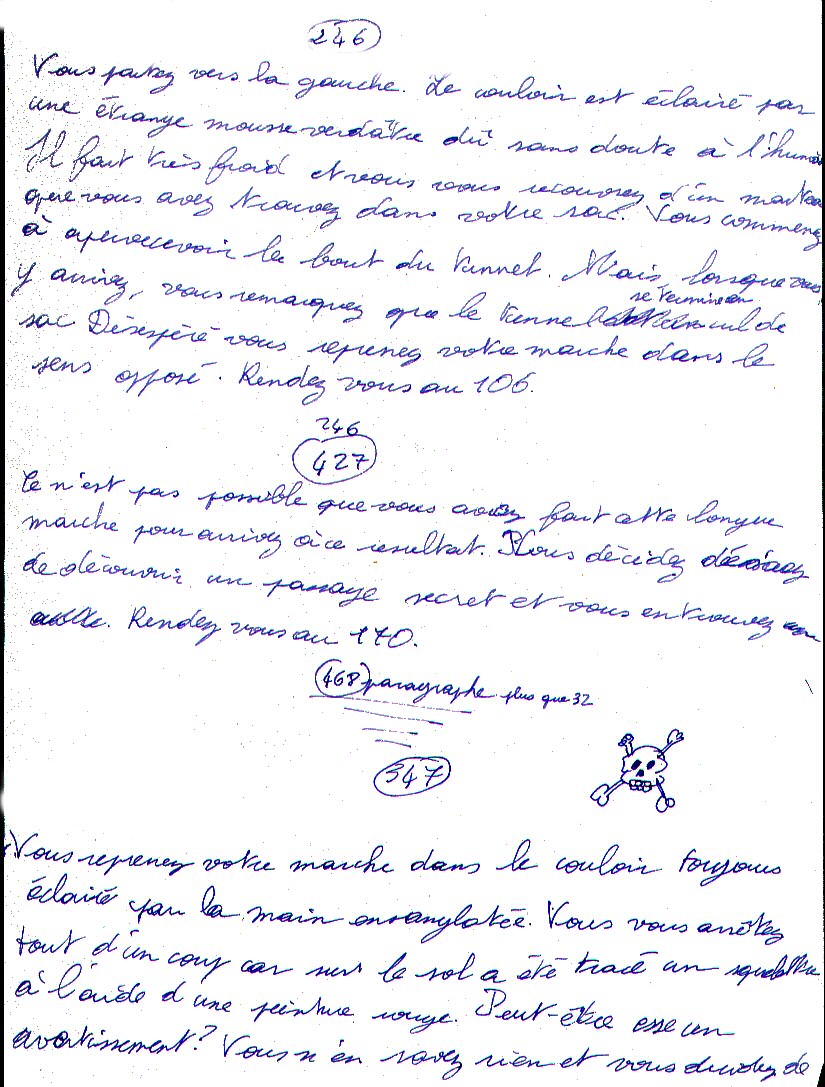 246
Vous partez vers la gauche. Le couloir est éclairé par
une étrange mousse verdâtre dû sans doute à l'humi
Il fait très froid et vous vous recouvrez d'un mantea
que vous avez trouvez dans votre sac. Vous commenez
à apercevoir le bout du tunnel. Mais lorsque vous
y arrivez, vous remarquez que le tunnel se termine en cul de
sac Désespéré vous reprenez votre marche dans le
sens opposé. Rendez vous au 106.
246
427
Ce n'est pas possible que vous avez fait cette longue
marche pour arrivez à ce resultat. Vous décidez
de découvrir un passage secret et vous en trouvez
Rendez vous au 170.
468 paragraphe plus que 32
347
Vous reprenez votre marche dans le couloir toujours
éclairé par la main ensanglatée. Vous vous arrêtez
tout d'un coup car sur le sol a été tracé un squelettre
à l'aide d'une peinture rouge. Peut-être esse un
avertissement? Vous n'en savez rien et vous decidez de